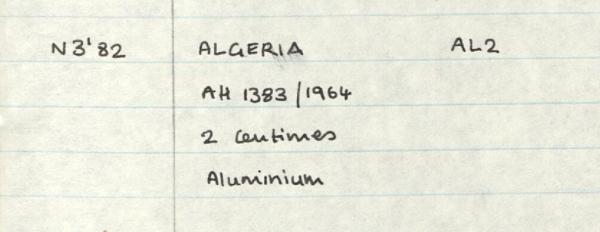 N3'82 ALGERIA AL2
AH 1383/1964
2 Centimes
Aluminium